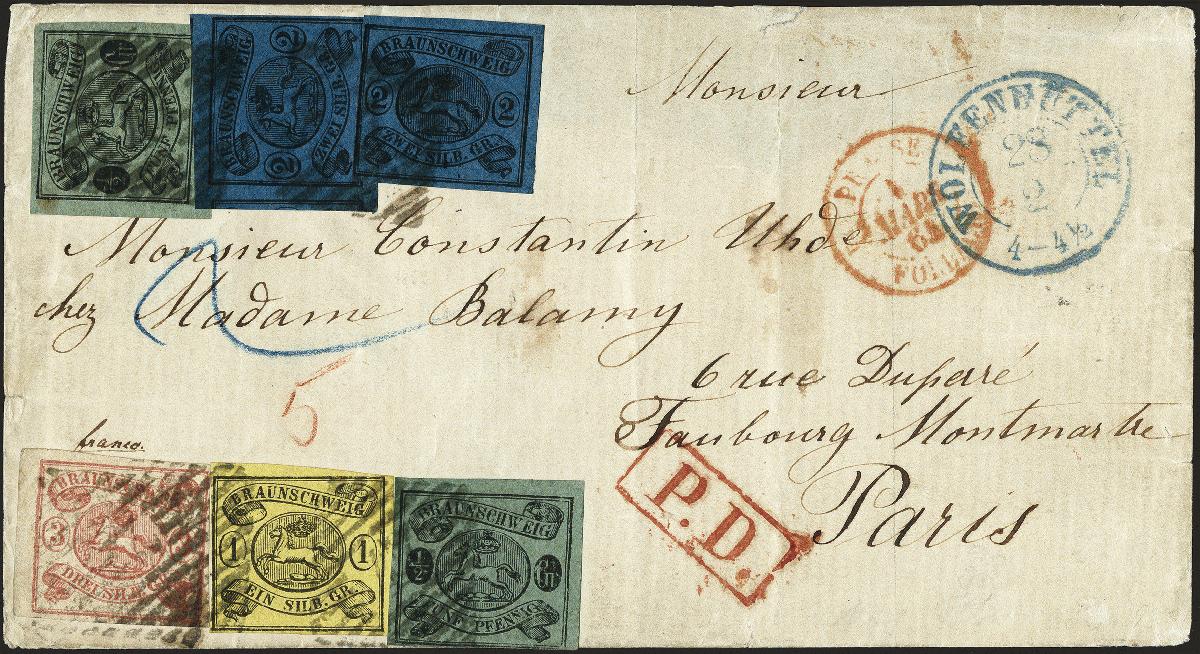 BRAUNSCHWEIG
½ Gr
FÜNF PFENNIG
BRAUNSCHWEIG
2 2
ZWEI SILB. GR.
BRAUNSCHWEIG
2 2
ZWEI SILB. GR.
Monsieur
WOLFENBÜTTEL
28
2
4-4½
MARS
Monsieur Constantin Uhde
chez Madame Balamy
2
5
6 rue Duperré
Faubourg Montmartre
Paris
P.D.
franco.
BRAUNSCHWEIG
3
DREI SILB. GR.
BRAUNSCHWEIG
1 1
EIN SILB. GR.
BRAUNSCHWEIG
½ Gr
FÜNF PFENNIG